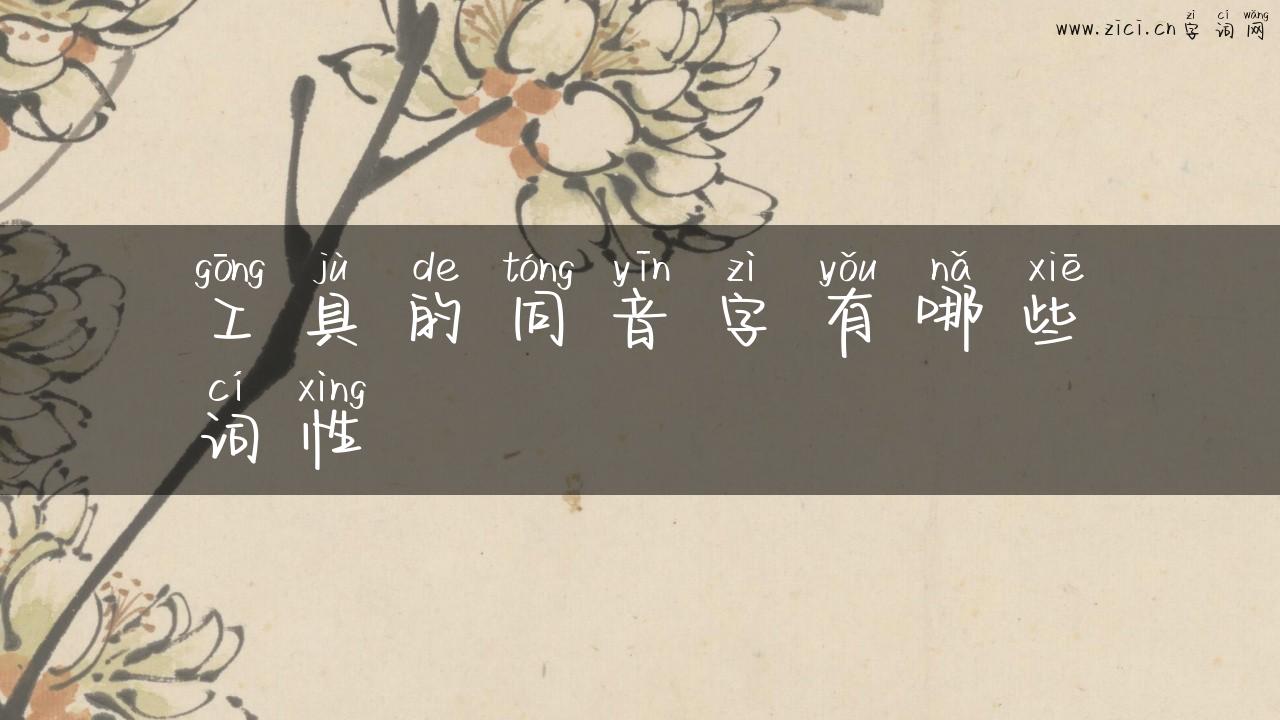 zì cí wǎng
www.zici.cn 字词网
gōng jù de tóng yīn zì yǒu nǎ xiē
工具的同音字有哪些
cí xìng
词性